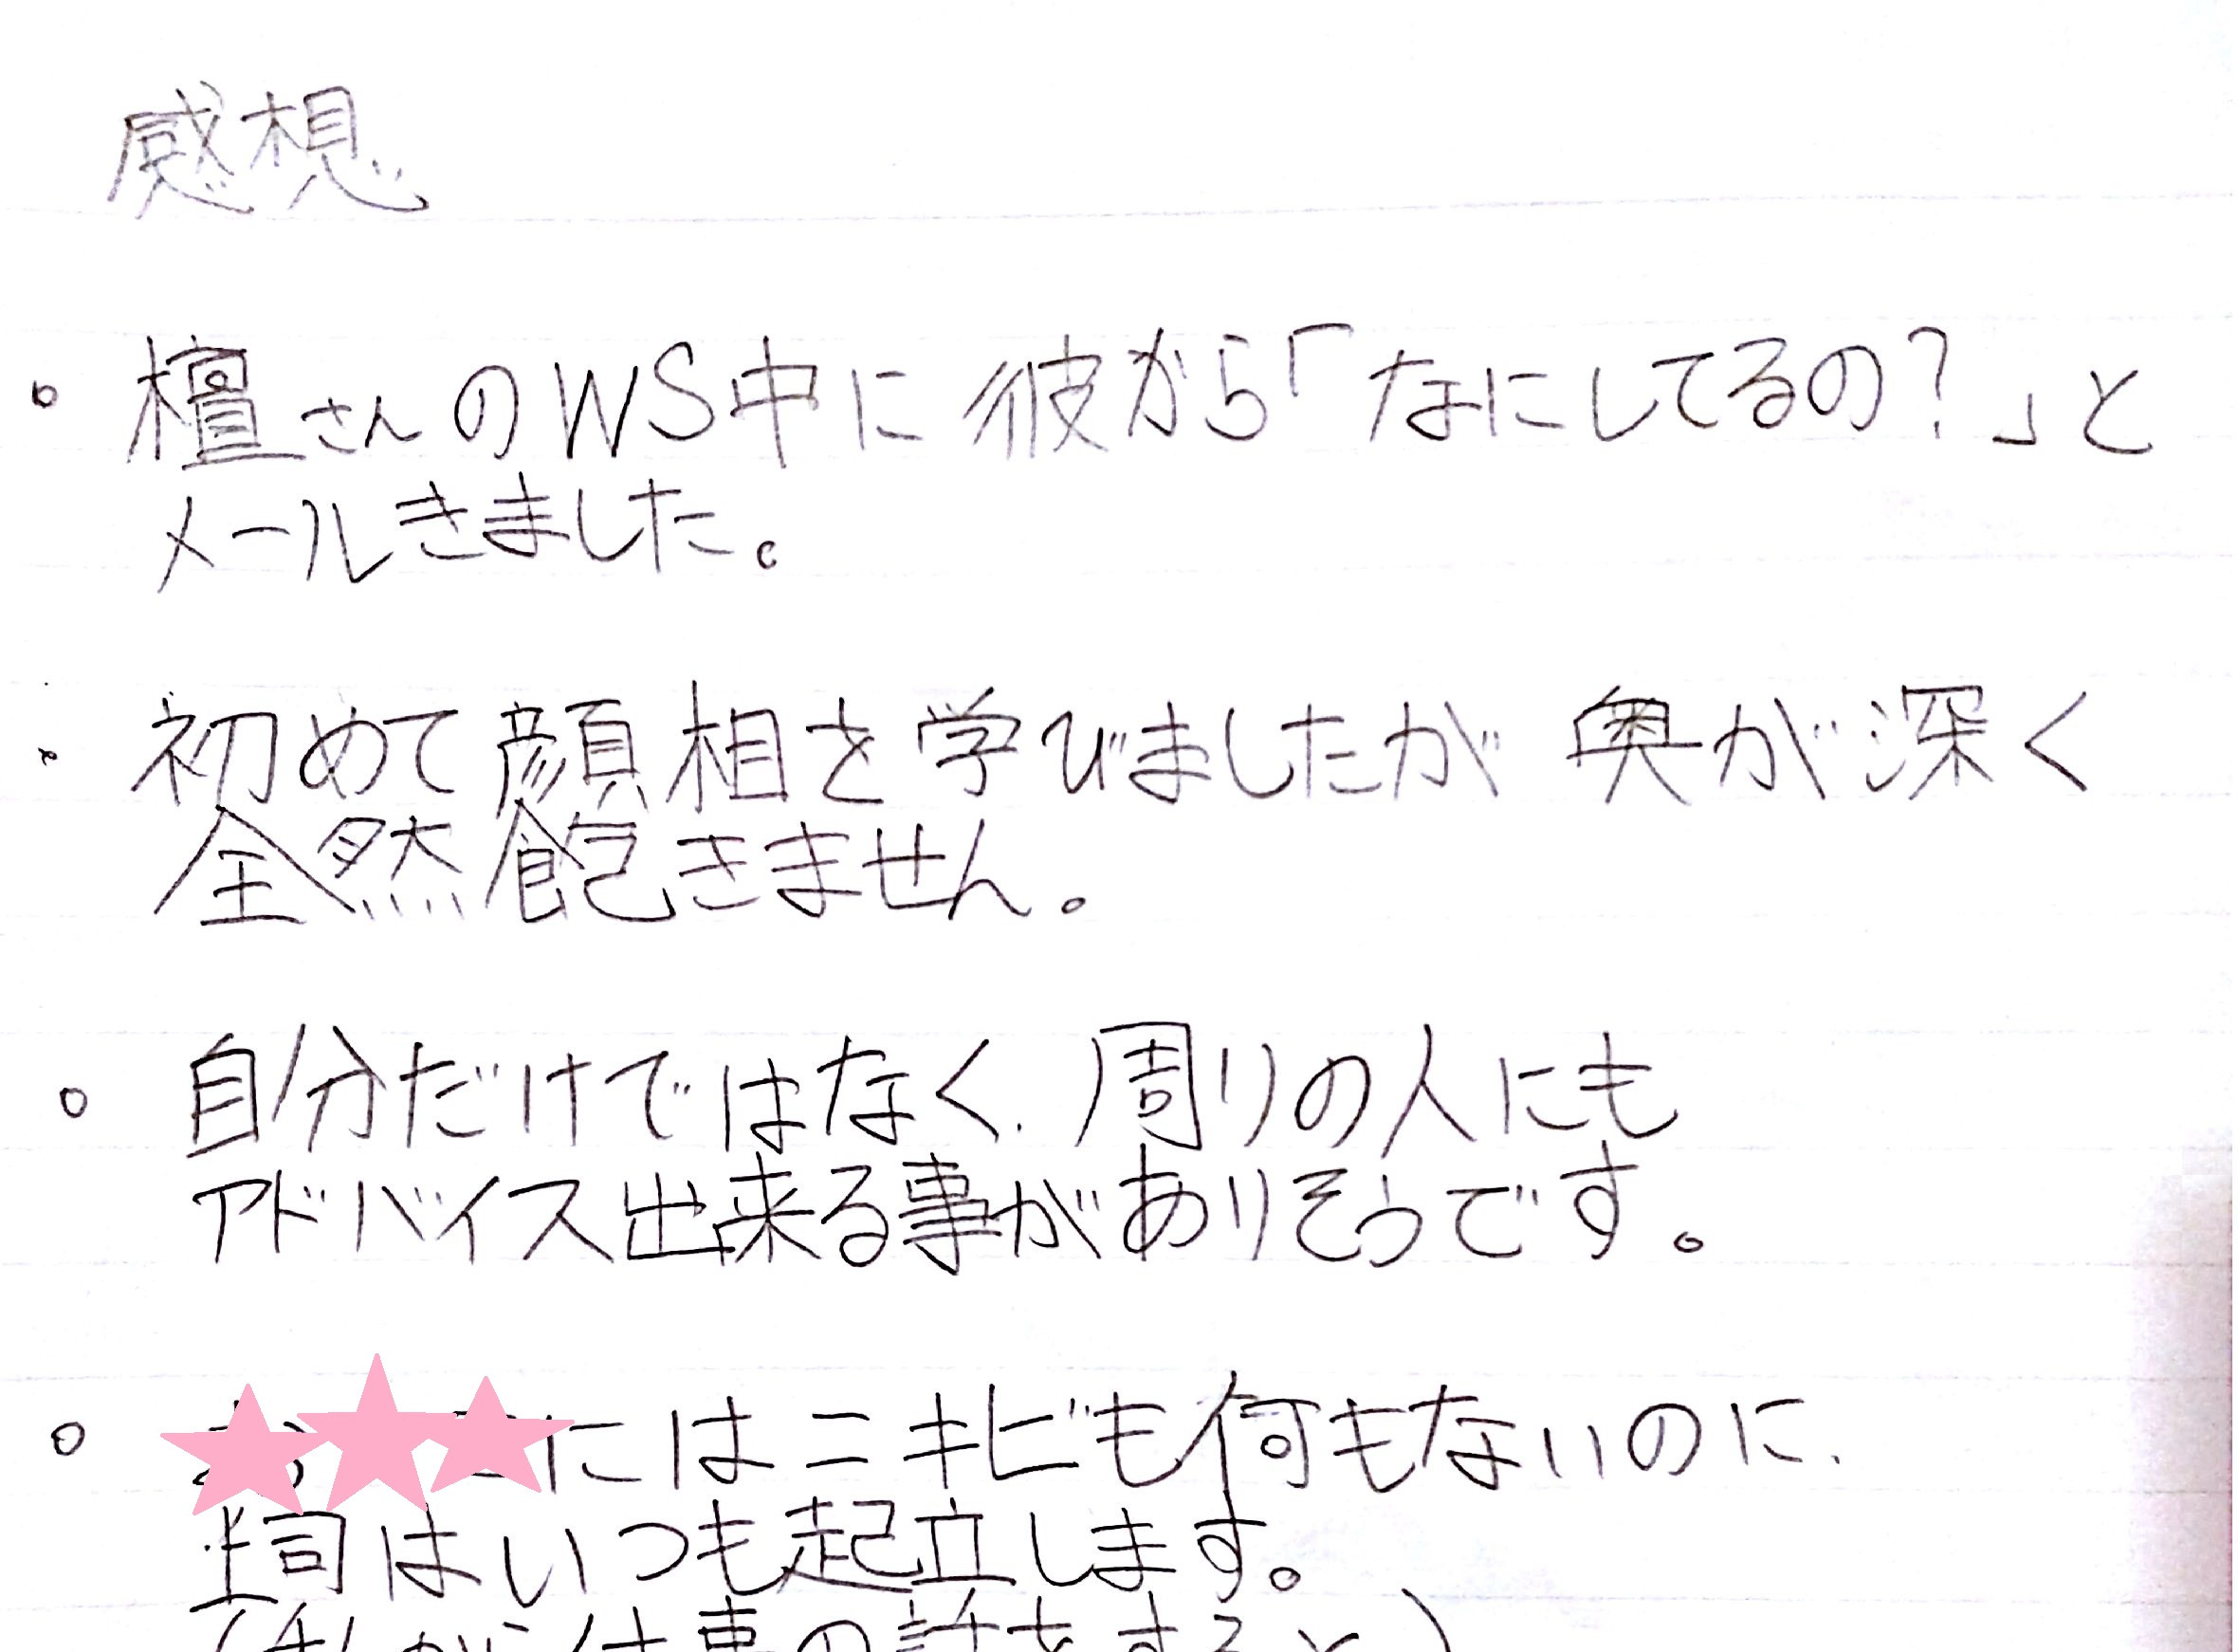 感想
。檀さんのWS中に彼から「なにしてるの?」と
メールきました。
・初めて顔相を学びましたが奥が深く
全然飽きません。
。自分だけではなく、周りの人にも
アドバイス出来る事がありそうです。
。にはニキビも何もないのに、
上司はいつも起立します。
(私が仕事の話をすると)